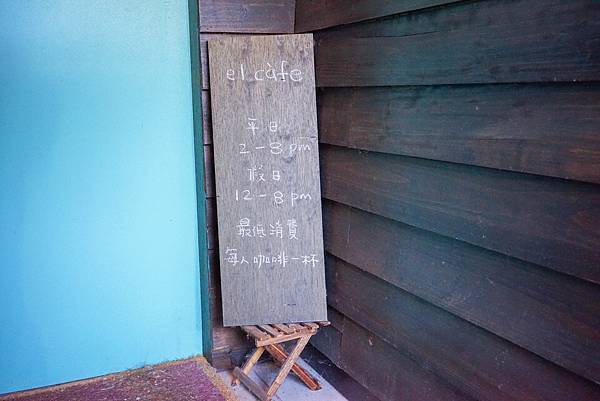 el càfe
平日
2-8pm
假日
12-8pm
最低消費
每人咖啡一杯